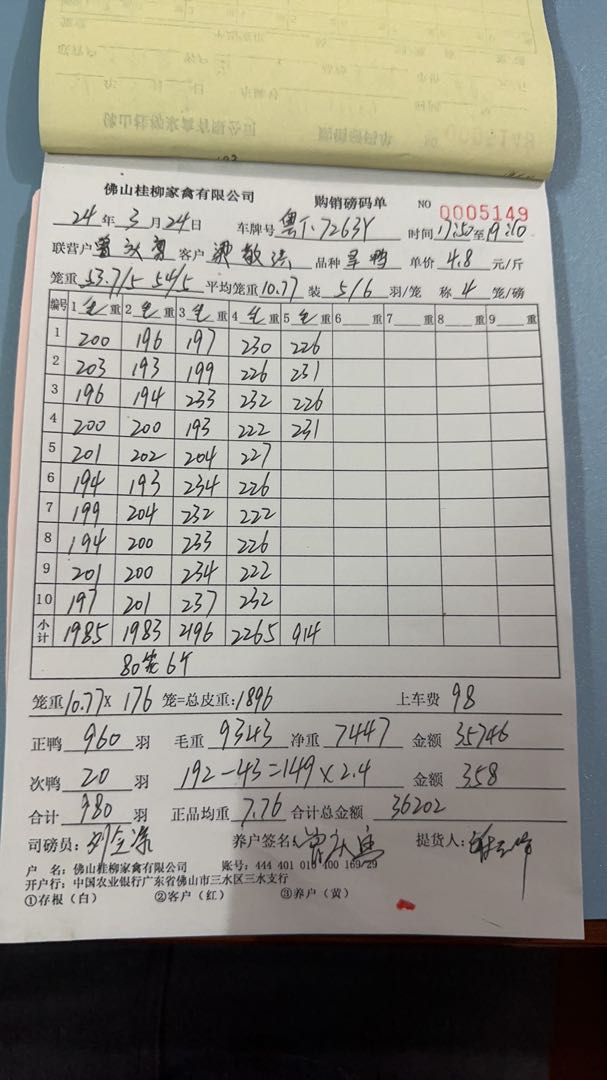 佛山桂柳家禽有限公司 购销磅码单 NO 0005149
24年3月24日 车牌号 粤J.7263Y 时间 17:50至19:10
联营户 客户 梁敬洪 品种 旱鸭 单价 4.8 元/斤
笼重 53.7/5 54/5 平均笼重 10.77 装 5/6 羽/笼 称 4 笼/磅
编号 1 毛 重 2 毛 重 3 毛 重 4 毛 重 5 毛 重 6 重 7 重 8 重 9 重
1 200 196 197 230 226
2 203 193 199 226 231
3 196 194 233 232 226
4 200 200 193 222 231
5 201 202 204 227
6 194 193 234 226
7 199 204 232 222
8 194 200 233 226
9 201 200 234 222
10 197 201 237 232
小计 1985 1983 2196 2265 914
80笼 6个
笼重 10.77 X 176 笼=总皮重: 1896 上车费 98
正鸭 960 羽 毛重 9343 净重 7447 金额 35746
次鸭 20 羽 192-43=149×2.4 金额 358
合计 980 羽 正品均重 7.76 合计总金额 36202
司磅员: 养户签名: 提货人:
户 名: 佛山桂柳家禽有限公司 账号: 444 401 010 400 169/29
开户行: 中国农业银行广东省佛山市三水区三水支行
①存根（白） ②客户（红） ③养户（黄）